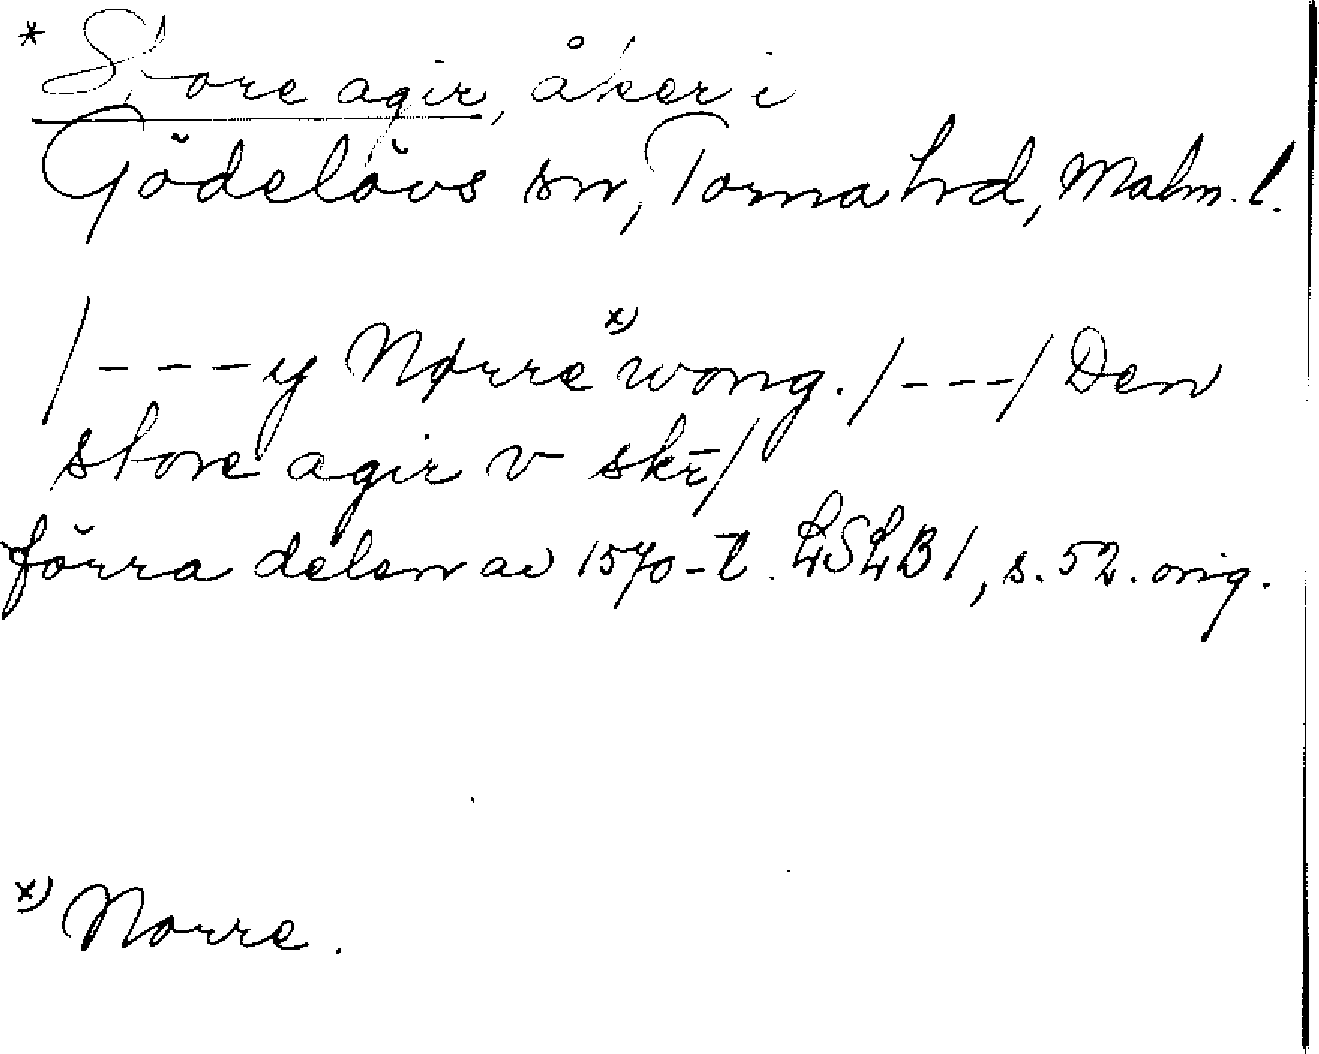 * Store agir, åker i
Gödelövs sn, Torna hd, Malm. l.
/---y Nørre x) wong. /---/ Den
store agir v skr̄/
förra delen av 1570-t. LSLB 1, s. 52. orig.
x) Norre.